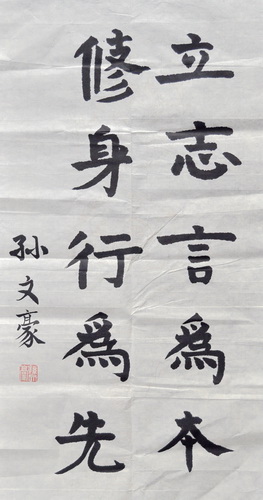 立志言為本
修身行為先
孙文豪